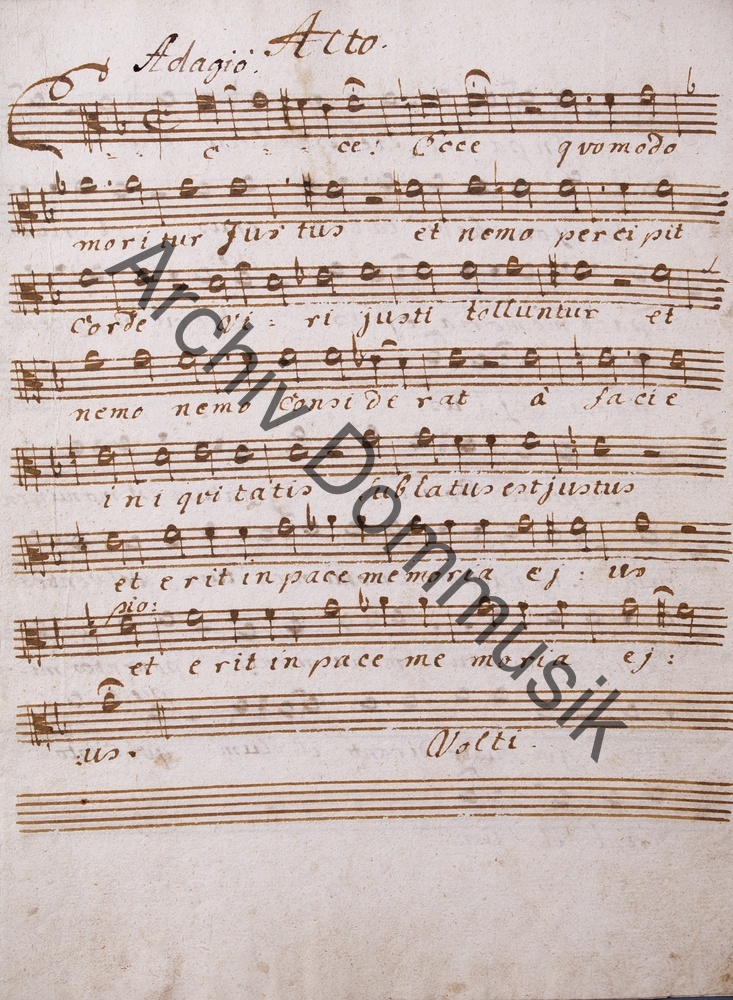 Alto.
Adagio.
E - - ce. Ecce quomodo
moritur Justus et nemo percipit
corde Vi: ri justi tolluntur et
nemo nemo Considerat à facie
iniquitatis sublatus est justus
et erit in pace memoria ej: us
pio:
et erit in pace memoria ej:
:us.
Volti.
Archiv Dommusik